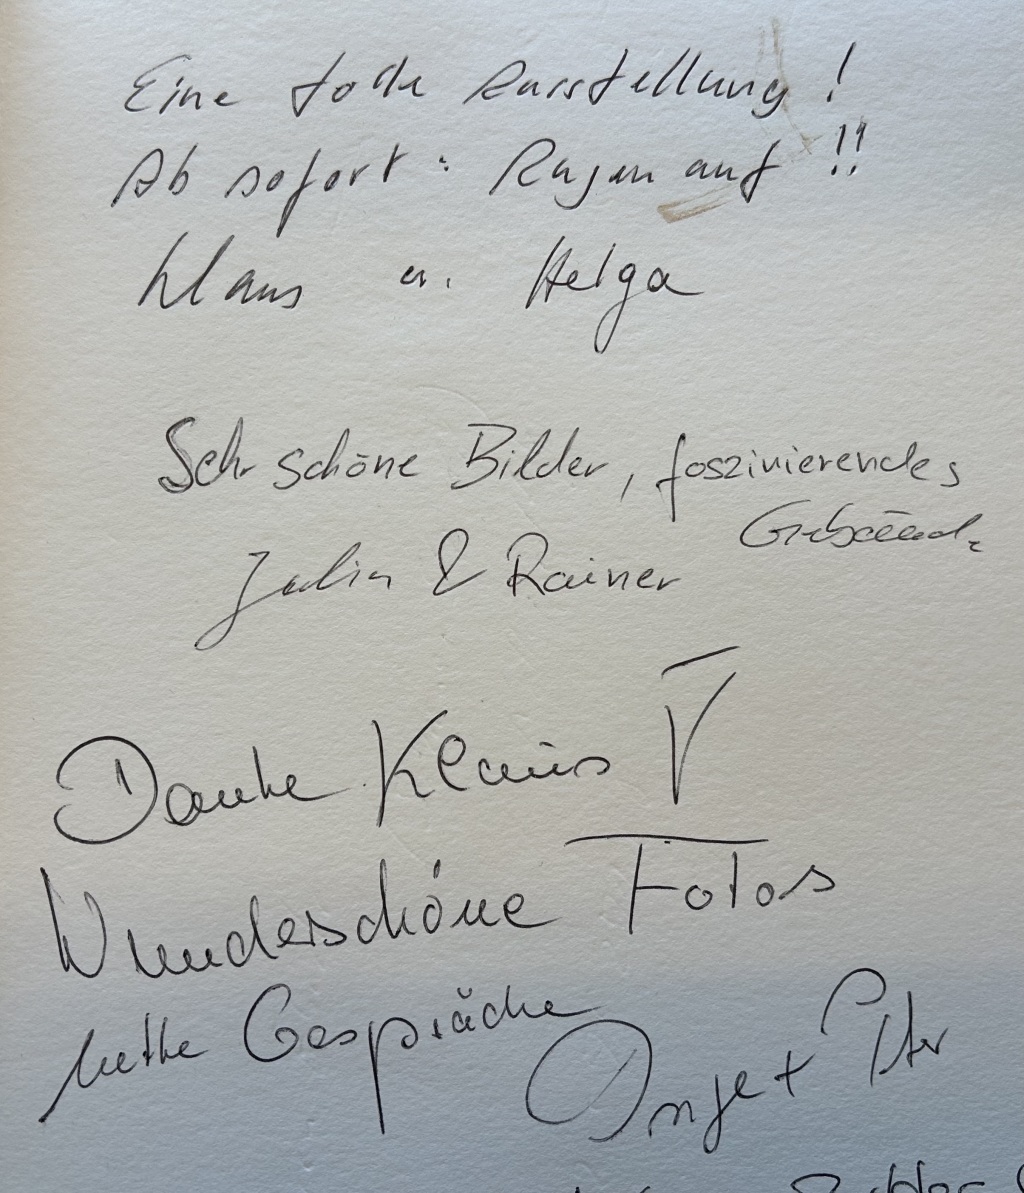 Eine tolle Ausstellung !
Ab sofort : Augen auf !!
Klaus u. Helga
Sehr schöne Bilder, faszinierendes
Gebäude
Julia & Rainer
Danke Klaus
Wunderschöne Fotos
nette Gespräche
Antje + Peter